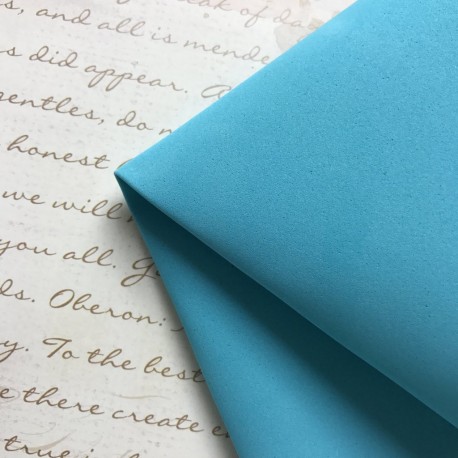 eak of da
s, and all is mende
s did appear. A
entles, do n
honest
we will
you all. G
ds. Oberon:
y. To the best
e there create
true is